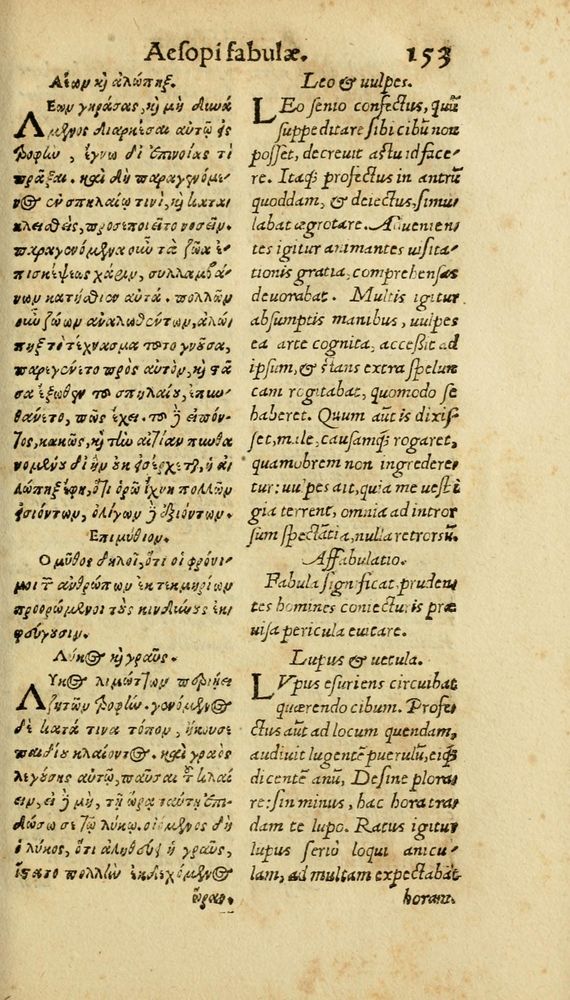 Aesopi fabulæ. 153
Λέων καὶ ἀλώπηξ.
ΛΕων γηράσας, καὶ μὴ δυνά
μενος διαρκέσαι αὑτῷ εἰς
τροφὴν, ἔγνω δι' ἐπινοίας τὶ
πρᾶξαι. καὶ δὴ παραγενόμε-
νος ἐν σπηλαίῳ τινὶ, καὶ κατα
κλειθεὶς, προσεποιεῖτο νοσεῖν.
παραγενόμενα οὖν τὰ ζῶα ἐ-
πισκέψεως χάριν, συλλαμβά-
νων κατήσθιεν αὐτά. πολλῶν
οὖν ζώων ἀναλωθέντων, ἀλώ
πηξ τὸ τέχνασμα τοῦτο γνοῦσα,
παρεγένετο πρὸς αὐτὸν, καὶ στᾶ
σα ἔξωθεν τοῦ σπηλαίου, ἐπυν
θάνετο, πῶς ἔχει. τοῦ δὲ εἰπόν-
τος, κακῶς, καὶ τὴν αἰτίαν πυνθα
νομένου δι' ἣν οὐκ εἰσέρχεται, ἡ ἀ
λώπηξ ἔφη, ὅτι ὁρῶ ἴχνη πολλῶν
εἰσιόντων, ὀλίγων δὲ ἐξιόντων.
Επιμύθιον.
Ο μῦθος δηλοῖ, ὅτι οἱ φρόνι-
μοι τῶν ἀνθρώπων ἐκ τεκμηρίων
προορώμενοι τοὺς κινδύνους ἐκ-
φεύγουσιν.
Λύκος καὶ γραῦς.
ΛΥκος λιμώττων περιῄει
ζητῶν τροφήν. γενόμενος
δὲ κατά τινα τόπον, ἤκουσε
παιδίου κλαίοντος. καὶ γραὸς
λεγούσης αὐτῷ, παῦσαι τοῦ κλαί
ειν, εἰ δὲ μὴ, τῇ ὥρᾳ ταύτῃ ἐπι-
δώσω σε τῷ λύκῳ. οἰόμενος δὲ
ὁ λύκος, ὅτι ἀληθεύει ἡ γραῦς,
ἵστατο πολλὴν ἐκδεχόμενος
ὥραν.
Leo & uulpes.
LEo senio confectus, quũ
suppeditare sibi cibũ non
posset, decreuit astu id face-
re. Itaq; profectus in antrũ
quoddam, & deiectus, simu-
labat ægrotare. Aduenien-
tes igitur animantes uisita-
tionis gratia, comprehensas
deuorabat. Multis igitur
absumptis manibus, uulpes
ea arte cognita, accessit ad
ipsum, & stans extra spelun
cam rogitabat, quomodo se
haberet. Quum aũt is dixis-
set, male, causamq; rogaret,
quamobrem non ingredere-
tur: uulpes ait, quia me uesti
gia terrent, omnia ad intror
sum spectãtia, nulla retrorsũ.
Affabulatio.
Fabula significat, pruden-
tes homines coniecturis præ
uisa pericula euitare.
Lupus & uetula.
LVpus esuriens circuibat
quærendo cibum. Profe-
ctus aũt ad locum quendam,
audiuit lugentẽ puerulũ, eiq;
dicentẽ anũ, Desine plora-
re: sin minus, hac hora tra-
dam te lupo. Ratus igitur
lupus serio loqui anicu-
lam, ad multam expectabat
horam.